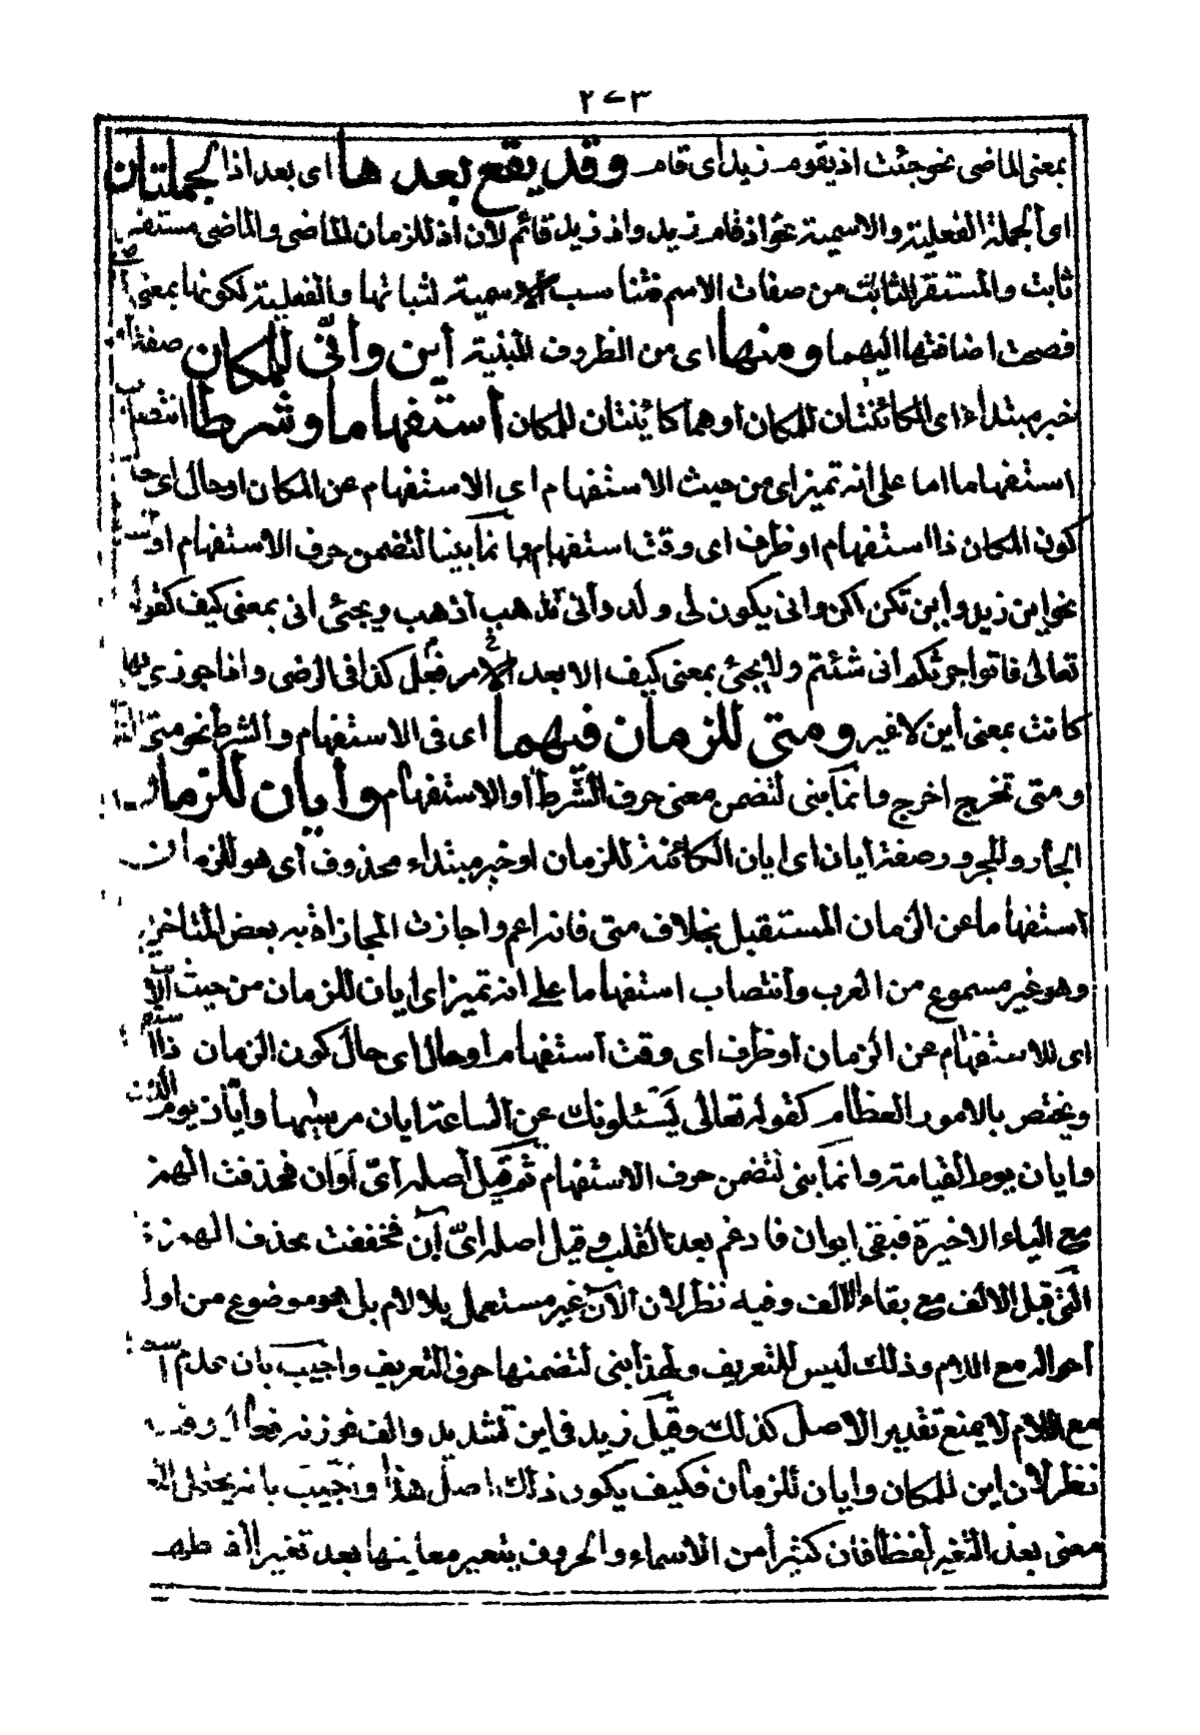 ٢٧٣
بمعنى الماضى نحو جئت اذ يقوم زيد اى قام وقد يقع بعدها اى بعد اذ الجملتان
اى الجملة الفعلية والاسمية نحو اذ قام زيد واذ زيد قائم لان اذ للزمان الماضى والماضى مستقر
ثابت والمستقر الثابت من صفات الاسم فتناسب الاسمية لثباتها والفعلية لكونها بمعنى
فصحت اضافتها اليهما ومنها اى من الظروف المبنية أين وأنّى للمكان صفة
خبر مبتداء اى الكائنتان للمكان أو هما كاينتان للمكان أستفهاما وشرطا انتصاب
استفهاما اما على انه تميز اى من حيث الاستفهام اى الاستفهام عن المكان او حال اى حال
كون المكان ذا استفهام او ظرف اى وقت استفهام وانما بنيا لتضمن حرف الاستفهام او
نحو اين زيد وأين تكن اكن وانى يكون لى ولد وأنى تذهب أذهب ويجئ انى بمعنى كيف كقوله
تعالى فاتوا حرثكم انى شئتم ولا يجئ بمعنى كيف الا بعد الامر فعل كذا فى الرضى واما
كانت بمعنى أين لا غير ومتى للزمان فيهما اى فى الاستفهام والشرط نحو متى
ومتى تخرج اخرج وانما بنى لتضمن معنى حرف الشرط أو الاستفهام وأيان للزمان
الجار والمجرور صفة أيان اى ايان الكائنة للزمان او خبر مبتداء محذوف أى هو للزمان
أستفهاما عن الزمان المستقبل بخلاف متى فانه اعم واجازت المجازاة به بعض المتاخرين
وهو غير مسموع من العرب وأنتصاب استفهاما على انه تميز اى ايان للزمان من حيث
اى للاستفهام عن الزمان أو ظرف اى وقت أستفهام أو حال اى حال كون الزمان ذا
ويختص بالامور العظام كقوله تعالى يسئلونك عن الساعة ايان مرسيها وايّان يوم الدين
وايان يوم القيامة وانما بنى لتضمن حرف الاستفهام ثم قيل أصله أىّ أوان فحذفت الهمزة
مع الياء الاخيرة فبقى ايوان فادغم بعد القلب وقيل اصله اىّ آن فخففت بحذف الهمزة
التى قبل الالف مع بقاء الالف وفيه نظر لان الآن غير مستعمل بلا لام بل هو موضوع من اول
أحواله مع اللام وذلك ليس للتعريف ولهذا بنى لتضمنها حرف التعريف واجيب بان عدم
مع اللام لا يمنع تقدير الاصل كذلك وقيل زيد فى اين تشديد والف فوزنه فعال وفيه
نظر لان اين للمكان وايان للزمان فكيف يكون ذلك اصل هذا وأجيب بانه
معنى بعد التغير لفظا فان كثيرا من الاسماء والحروف يتغير معاينها بعد تغير